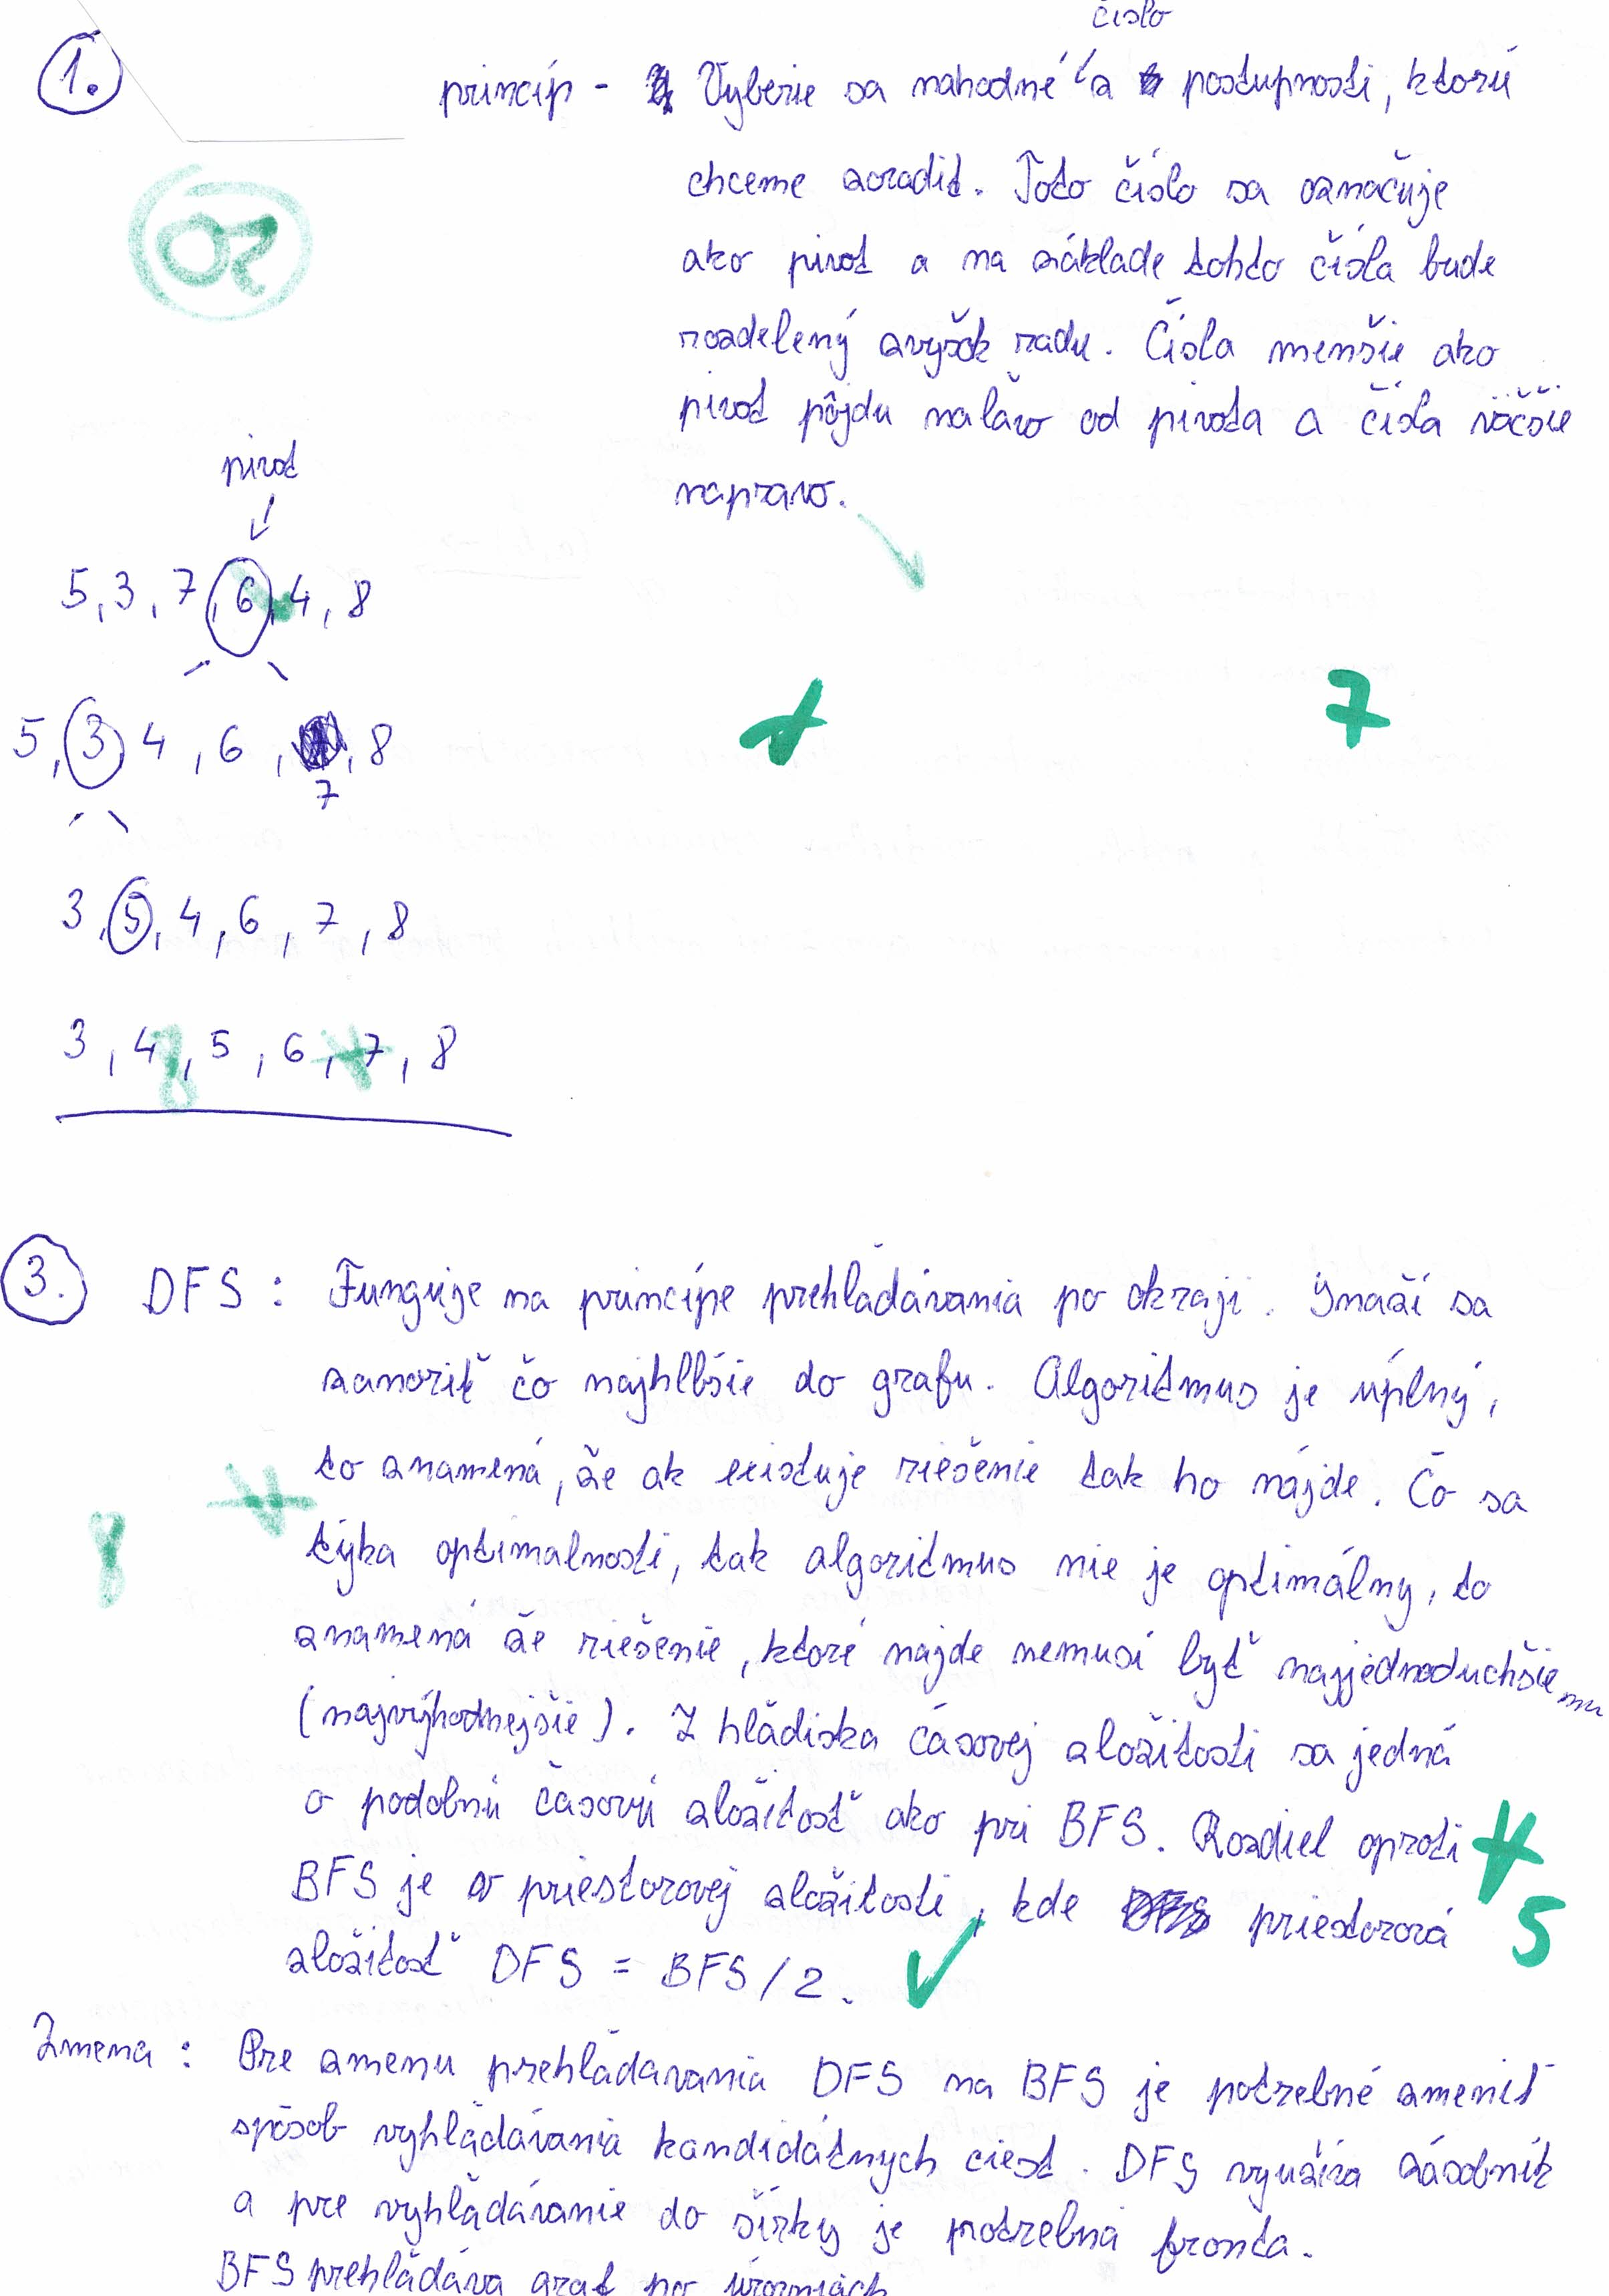 1.
číslo
princíp - Vyberie sa náhodné z postupnosti, ktorú
chceme zoradiť. Toto číslo sa označuje
ako pivot a na základe tohto čísla bude
rozdelený zvyšok radu. Čísla menšie ako
pivot pôjdu naľavo od pivota a čísla väčšie
napravo.
pivot
5, 3, 7, 6, 4, 8
5, 3 4, 6, , 8
7
3, 5, 4, 6, 7, 8
3, 4, 5, 6, 7, 8
7
3. DFS : Funguje na princípe prehľadávania po okraji. Snaží sa
zanoriť čo najhlbšie do grafu. Algoritmus je úplný,
to znamená, že ak existuje riešenie tak ho nájde. Čo sa
týka optimalnosti, tak algoritmus nie je optimálny, to
znamená že riešenie, ktoré nájde nemusí byť najjednoduchšie
(najvýhodnejšie). Z hľadiska časovej zložitosti sa jedná
o podobnú časovú zložitosť ako pri BFS. Rozdiel oproti
BFS je v priestorovej zložitosti, kde priestorová
5
zložitosť DFS = BFS / 2.
Zmena : Pre zmenu prehľadávania DFS na BFS je potrebné zmeniť
spôsob vyhľadávania kandidátnych ciest. DFS využíva zásobník
a pre vyhľadávanie do šírky je potrebná fronta.
BFS prehľadáva graf po úrovniach